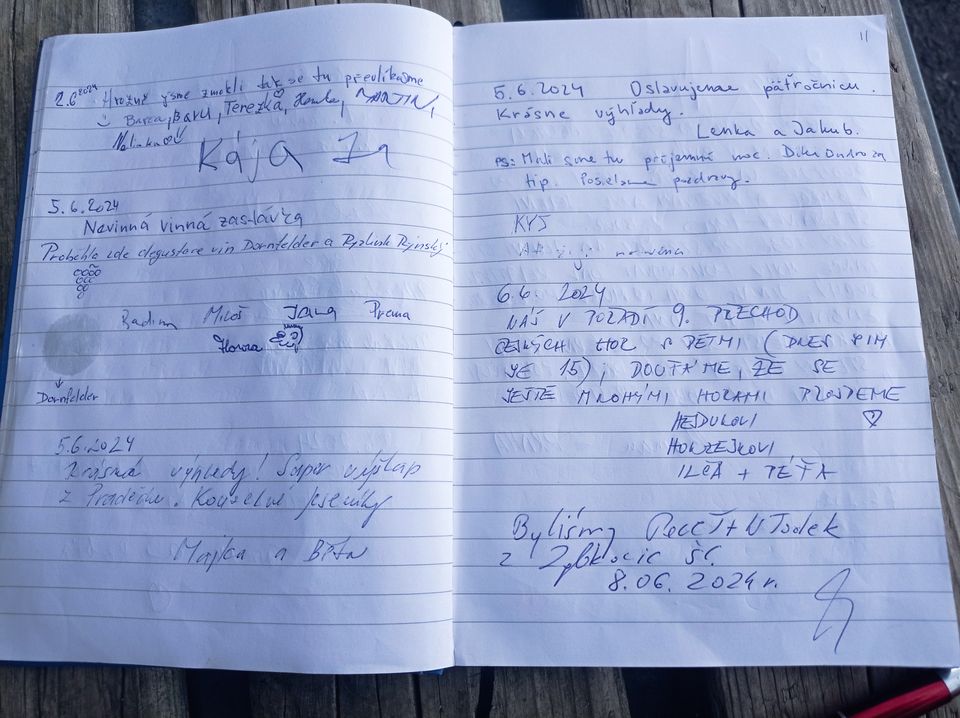 2.6 2024 Hrozně jsme zmokli tak se tu převlíkáme
Barča, BARU, Terezka, Hanka, MARTIN,
Kája
5.6.2024
Nevinná vinná zastávka
Proběhla zde degustace vín Dornfelder a Ryzlink Rýnský
Radim Miloš Jana
Honza
Dornfelder
5.6.2024
Krásné výhledy! Super výšlap
z Pradědu. Kouzelné Jeseníky
Majka a
11
5.6.2024 Oslavujeme pätročnicu.
Krásne výhľady.
Lenka a Jakub.
PS: Mali sme tu príjemnú noc. Dík za
tip. Posielame pozdravy.
KYJ
6.6. 2024
NÁŠ V POŘADÍ 9. PŘECHOD
ČESKÝCH HOR S DĚTMI (DNES JIM
JE 15), DOUFÁME, ŽE SE
JEŠTĚ MNOHÝMI HORAMI PROJDEME
HEJDUKOVI
HONZEJKOVI
ILČA + PÉŤA
Byliśmy
z Śl.
8.06.2024 r.